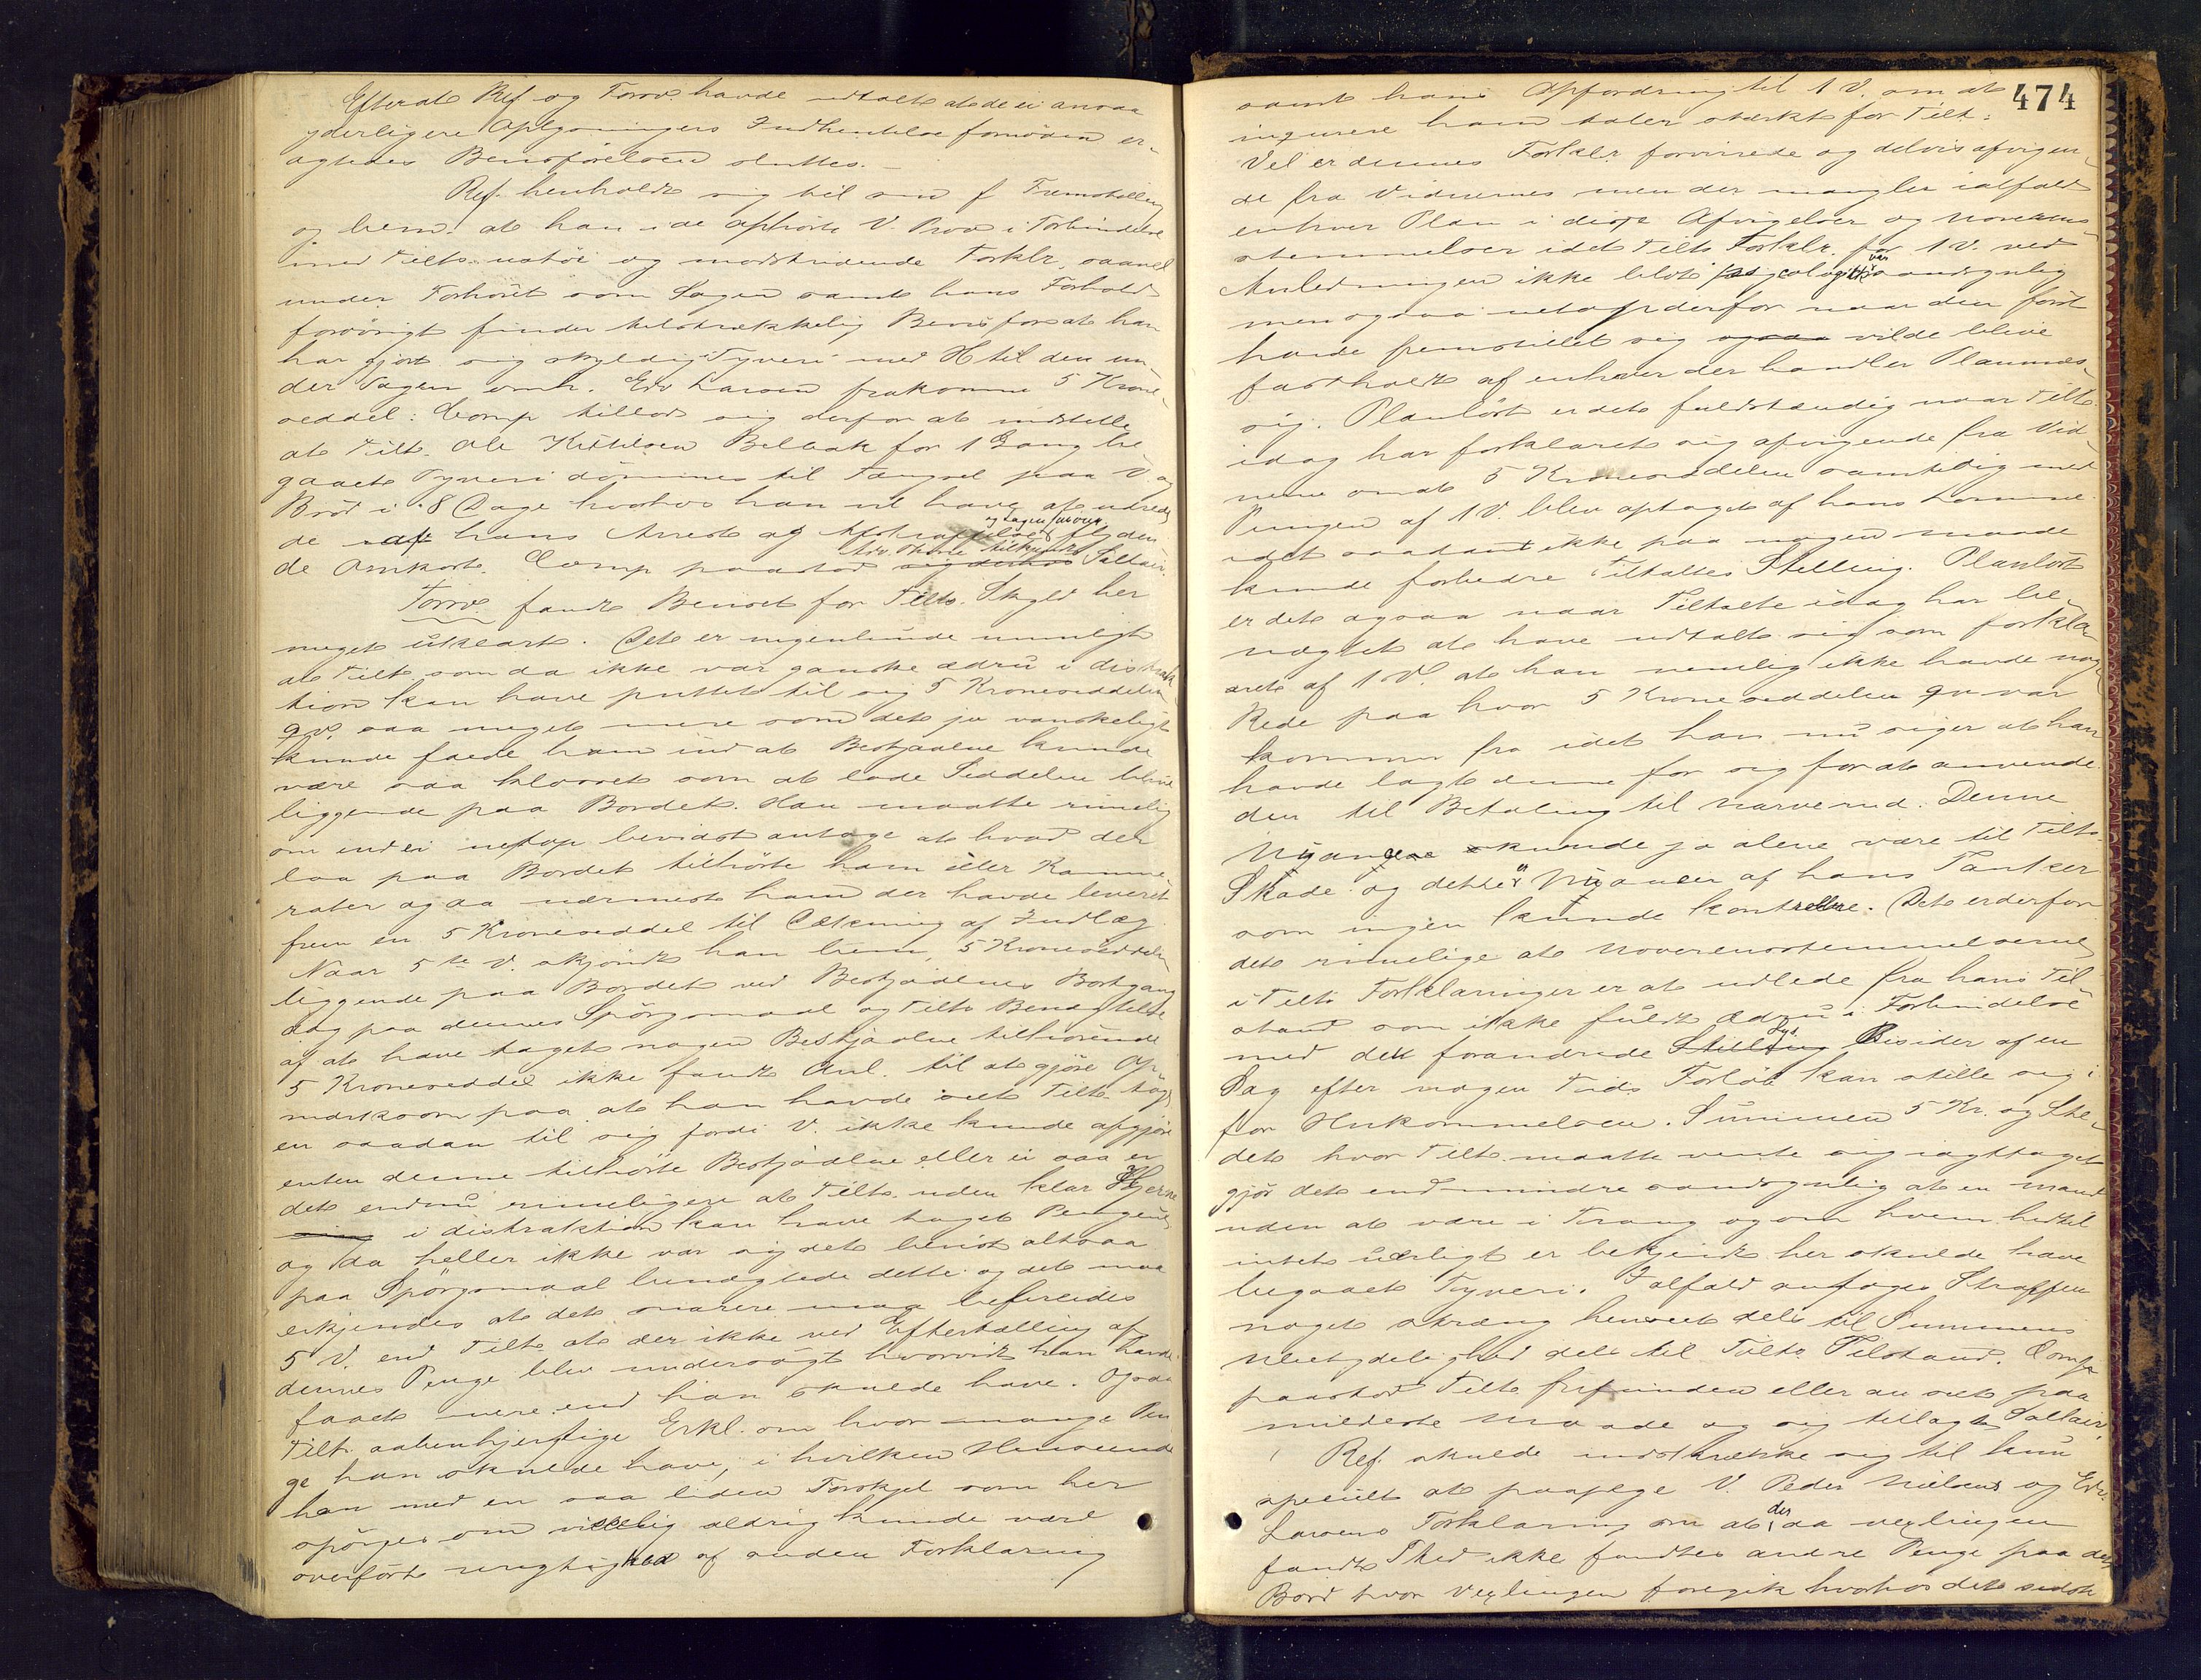 Efterat Ref og Forsv. havde udtalt at de ei ansaa
yderligere Oplysningers Indhentelse fornöden er-
agtedes Bevisförelsen sluttet.—
Ref. henholdt sig til sin f Fremstilling
og bem. at han i de ophörte V. Prov i Forbindelse
med Tiltes usööi og modstridende Forklr, saavel
under Forhöret som Sagen samt hans Forhold
forövrigt finder tilstrækkelig Bevis for at han
har gjort sig skyldig i Tyveri med H til den un-
der Sagen omh. Edv Larsen frakomne 5 Krone-
seddel: Comp tillod sig derfor at indstille
at Tilt. Ole Kittilsen Belbak for 1 Gang be-
gaaet Tyveri dömmes til Fængsel paa V. og
Bröd i 8 Dage hvorhos han vil have at udrede
de af hans Arrest og og Sagen foröv. flyden
de Omkost. Comp paastod sig derhos Sallair.
Forsv. fandt Beviset for Tilts. Skyld her
meget uklart. Det er nogenlunde muligt
at Tilt. som da ikke var ganske ædru i distrak
tion kan have puttet til sig 5 Kroneseddelen
qv. saa meget mere som det jo vanskeligt
kunde falde ham ind at Bestjaalne kunde
være saa klodset som at lade Seddelen blive
liggende paa Bordet. Han maatte rimelig
om end ei netop bevidst antage at hvad der
laa paa Bordet tilhörte ham eller Kamme-
rater ogsaa nærmest ham der havde leveret
frem en 5 Kroneseddel til Dækning af Indlæg
Naar 5te V. skjöndt han bem. 5 Kroneseddelen
liggende paa Bordet ved Bestjaalnes Bortgang
dog paa dennes Spörgsmaal og Tilts Benægtelse
af at have taget nogen Bestjaalne tilhörende
5 Kroneseddel ikke fandt Anl. til at gjöre Op-
mærksom paa at han havde seet Tilt. tog
en saadan til sig fordi V. ikke kunde afgjöre
enten denne tilhörte Bestjaalne eller ei saa er
det endnu rimeligere at Tilt. uden klar Hjerne
i distraktion kan have taget Pengene
og da heller ikke var sig det bevist altsaa
paa Spörgsmaal benægtede dette og det maa
erkjendes at det snarere maa bebreides
5 V. end Tilt at der ikke ved Eftertælling af
dennes Penge blev undersögt hvorvidt han havde
faaet mere end han skulde have. Ogsaa
Tilt. aabenhjertige Erkl. om hvor mange Pen
ge han skulde have, i hvilken Henseende
han med en saa liden Forskjel som her
spörges om virkelig aldrig kunde være
overfört urigtighed af anden Forklaring
474
samt hans Opfordring til 1 V. om at
inqurere ham taler stærkt for Tilt:
Vel er dennes Forklr forvirrede og delvis afvigen-
de fra Vidnernes men der mangler ialfald
enhver Plan i disse Afvigelser og uoverens-
stemmelser idet Tilts Forklr. for 1 V. ved
Anledningen ikke blot psycologisk var sandsynlig
men ogsaa netop derfor naar den först
havde fremstillet sig ogsaa vilde blive
fastholdt af enhver der handler Planmæs-
sig. Planlöst er det fuldstændig naar Tilt.
idag har forklaret sig afvigende fra Vid-
nerne om at 5 Kroneseddelen samtidig med
Pengene af 1 V. blev optaget af hans Lomme
idet saadant ikke paa nogen maade
kunde forbedre Tiltaltes Stilling. Planlöst
er det ogsaa naar Tiltalte idag har be-
nægtet at have udtalt sig som forkla-
aret af 1 V. at han nemlig ikke havde nogen
Rede paa hvor 5 Kroneseddelen qv var
kommen fra idet han nu siger at han
havde lagt denne for sig for at anvende
den til Betaling til Narverud. Denne
Nyangse kunde jo alene være til Tilts
Skade og dette er Nyancer af hans Tanker
som ingen kunde kontrollere. Det er derfor
det rimelige at Uoverensstemmelserne
i Tilts Forklaringer er at udlede fra hans Til-
stand som ikke fuldt Ædru i Forbindelse
med den forandrede Stilling Besider af en
Sag efter nogen Tids Forlöb kan stille sig i
for Hukommelsen. Summen 5 Kr. og Ste-
det hvor Tilt. maatte vente sig iagttaget
gjör det end mindre sandsynlig at en mand
uden at være i Trang og om hvem hidtil
intet uærligt er bekjendt her skulde have
begaaet Tyveri. Ialfald ansages Straffen
noget streng henseet dels til Summens
Ubetydelighed dels til Tilts Tilstand. Comp
paastod Tilt. frifunden eller anseet paa
mildeste Maade og sig tillagt Sallair.
Ref. skulde indskrænke sig til kun
specielt at paapege V. Peder Nielsens og Edv.
Larsens Forklaring om at der da vexlingen
fandt Sted ikke fandtes andre Penge paa det
Bord hvor Vexlingen foregik hvorhos det sidste